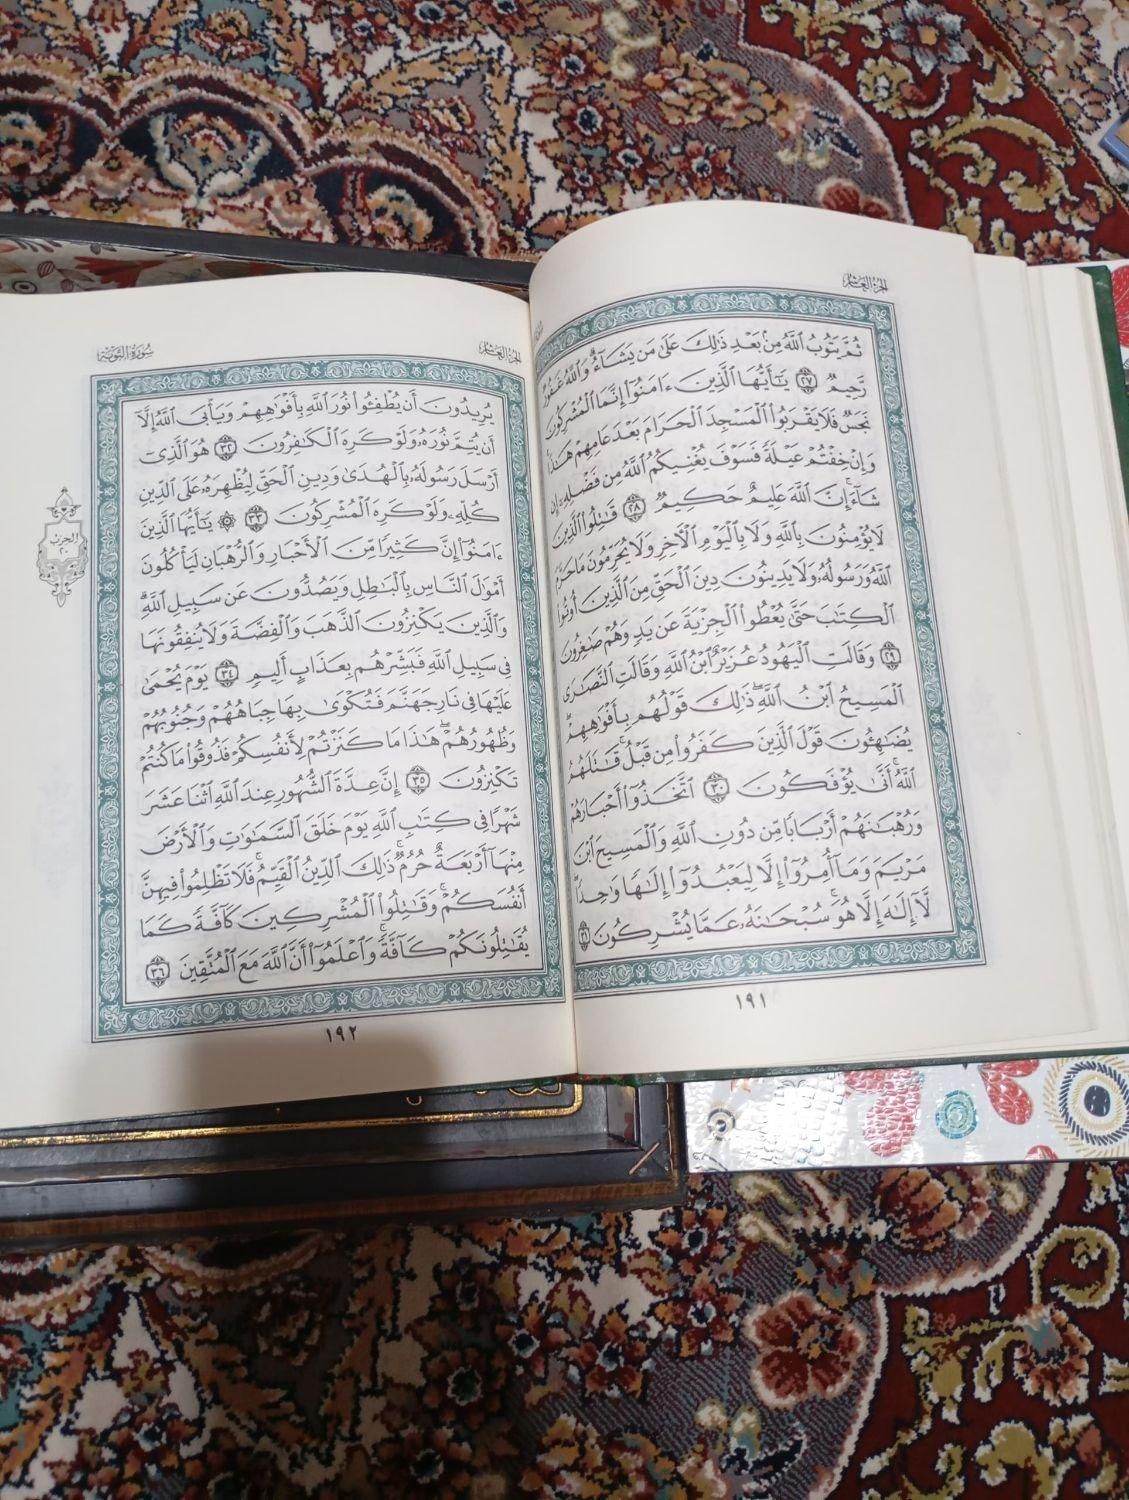 الجزء العاشر
ثُمَّ يَتُوبُ ٱللَّهُ مِنۢ بَعْدِ ذَٰلِكَ عَلَىٰ مَن يَشَآءُۗ وَٱللَّهُ غَفُورٌ
رَّحِيمٌ ٢٧ يَـٰٓأَيُّهَا ٱلَّذِينَ ءَامَنُوٓا۟ إِنَّمَا ٱلْمُشْرِكُونَ
نَجَسٌ فَلَا يَقْرَبُوا۟ ٱلْمَسْجِدَ ٱلْحَرَامَ بَعْدَ عَامِهِمْ هَـٰذَا
وَإِنْ خِفْتُمْ عَيْلَةً فَسَوْفَ يُغْنِيكُمُ ٱللَّهُ مِن فَضْلِهِۦٓ إِن
شَآءَۚ إِنَّ ٱللَّهَ عَلِيمٌ حَكِيمٌ ٢٨ قَـٰتِلُوا۟ ٱلَّذِينَ
لَا يُؤْمِنُونَ بِٱللَّهِ وَلَا بِٱلْيَوْمِ ٱلْـَٔاخِرِ وَلَا يُحَرِّمُونَ مَا حَرَّمَ
ٱللَّهُ وَرَسُولُهُۥ وَلَا يَدِينُونَ دِينَ ٱلْحَقِّ مِنَ ٱلَّذِينَ أُوتُوا۟
ٱلْكِتَـٰبَ حَتَّىٰ يُعْطُوا۟ ٱلْجِزْيَةَ عَن يَدٍ وَهُمْ صَـٰغِرُونَ
٢٩ وَقَالَتِ ٱلْيَهُودُ عُزَيْرٌ ٱبْنُ ٱللَّهِ وَقَالَتِ ٱلنَّصَـٰرَى
ٱلْمَسِيحُ ٱبْنُ ٱللَّهِۖ ذَٰلِكَ قَوْلُهُم بِأَفْوَٰهِهِمْۖ
يُضَـٰهِـُٔونَ قَوْلَ ٱلَّذِينَ كَفَرُوا۟ مِن قَبْلُۚ قَـٰتَلَهُمُ
ٱللَّهُۚ أَنَّىٰ يُؤْفَكُونَ ٣٠ ٱتَّخَذُوٓا۟ أَحْبَارَهُمْ
وَرُهْبَـٰنَهُمْ أَرْبَابًا مِّن دُونِ ٱللَّهِ وَٱلْمَسِيحَ ٱبْنَ
مَرْيَمَ وَمَآ أُمِرُوٓا۟ إِلَّا لِيَعْبُدُوٓا۟ إِلَـٰهًا وَٰحِدًاۖ
لَّآ إِلَـٰهَ إِلَّا هُوَۚ سُبْحَـٰنَهُۥ عَمَّا يُشْرِكُونَ ٣١
١٩١
الجزء العاشر
سورة التوبة
يُرِيدُونَ أَن يُطْفِـُٔوا۟ نُورَ ٱللَّهِ بِأَفْوَٰهِهِمْ وَيَأْبَى ٱللَّهُ إِلَّآ
أَن يُتِمَّ نُورَهُۥ وَلَوْ كَرِهَ ٱلْكَـٰفِرُونَ ٣٢ هُوَ ٱلَّذِىٓ
أَرْسَلَ رَسُولَهُۥ بِٱلْهُدَىٰ وَدِينِ ٱلْحَقِّ لِيُظْهِرَهُۥ عَلَى ٱلدِّينِ
كُلِّهِۦ وَلَوْ كَرِهَ ٱلْمُشْرِكُونَ ٣٣ ۞ يَـٰٓأَيُّهَا ٱلَّذِينَ
ءَامَنُوٓا۟ إِنَّ كَثِيرًا مِّنَ ٱلْأَحْبَارِ وَٱلرُّهْبَانِ لَيَأْكُلُونَ
أَمْوَٰلَ ٱلنَّاسِ بِٱلْبَـٰطِلِ وَيَصُدُّونَ عَن سَبِيلِ ٱللَّهِۗ
وَٱلَّذِينَ يَكْنِزُونَ ٱلذَّهَبَ وَٱلْفِضَّةَ وَلَا يُنفِقُونَهَا
فِى سَبِيلِ ٱللَّهِ فَبَشِّرْهُم بِعَذَابٍ أَلِيمٍ ٣٤ يَوْمَ يُحْمَىٰ
عَلَيْهَا فِى نَارِ جَهَنَّمَ فَتُكْوَىٰ بِهَا جِبَاهُهُمْ وَجُنُوبُهُمْ
وَظُهُورُهُمْۖ هَـٰذَا مَا كَنَزْتُمْ لِأَنفُسِكُمْ فَذُوقُوا۟ مَا كُنتُمْ
تَكْنِزُونَ ٣٥ إِنَّ عِدَّةَ ٱلشُّهُورِ عِندَ ٱللَّهِ ٱثْنَا عَشَرَ
شَهْرًا فِى كِتَـٰبِ ٱللَّهِ يَوْمَ خَلَقَ ٱلسَّمَـٰوَٰتِ وَٱلْأَرْضَ
مِنْهَآ أَرْبَعَةٌ حُرُمٌۚ ذَٰلِكَ ٱلدِّينُ ٱلْقَيِّمُۚ فَلَا تَظْلِمُوا۟ فِيهِنَّ
أَنفُسَكُمْۚ وَقَـٰتِلُوا۟ ٱلْمُشْرِكِينَ كَآفَّةً كَمَا
يُقَـٰتِلُونَكُمْ كَآفَّةًۚ وَٱعْلَمُوٓا۟ أَنَّ ٱللَّهَ مَعَ ٱلْمُتَّقِينَ ٣٦
الحزب
٢٠
١٩٢